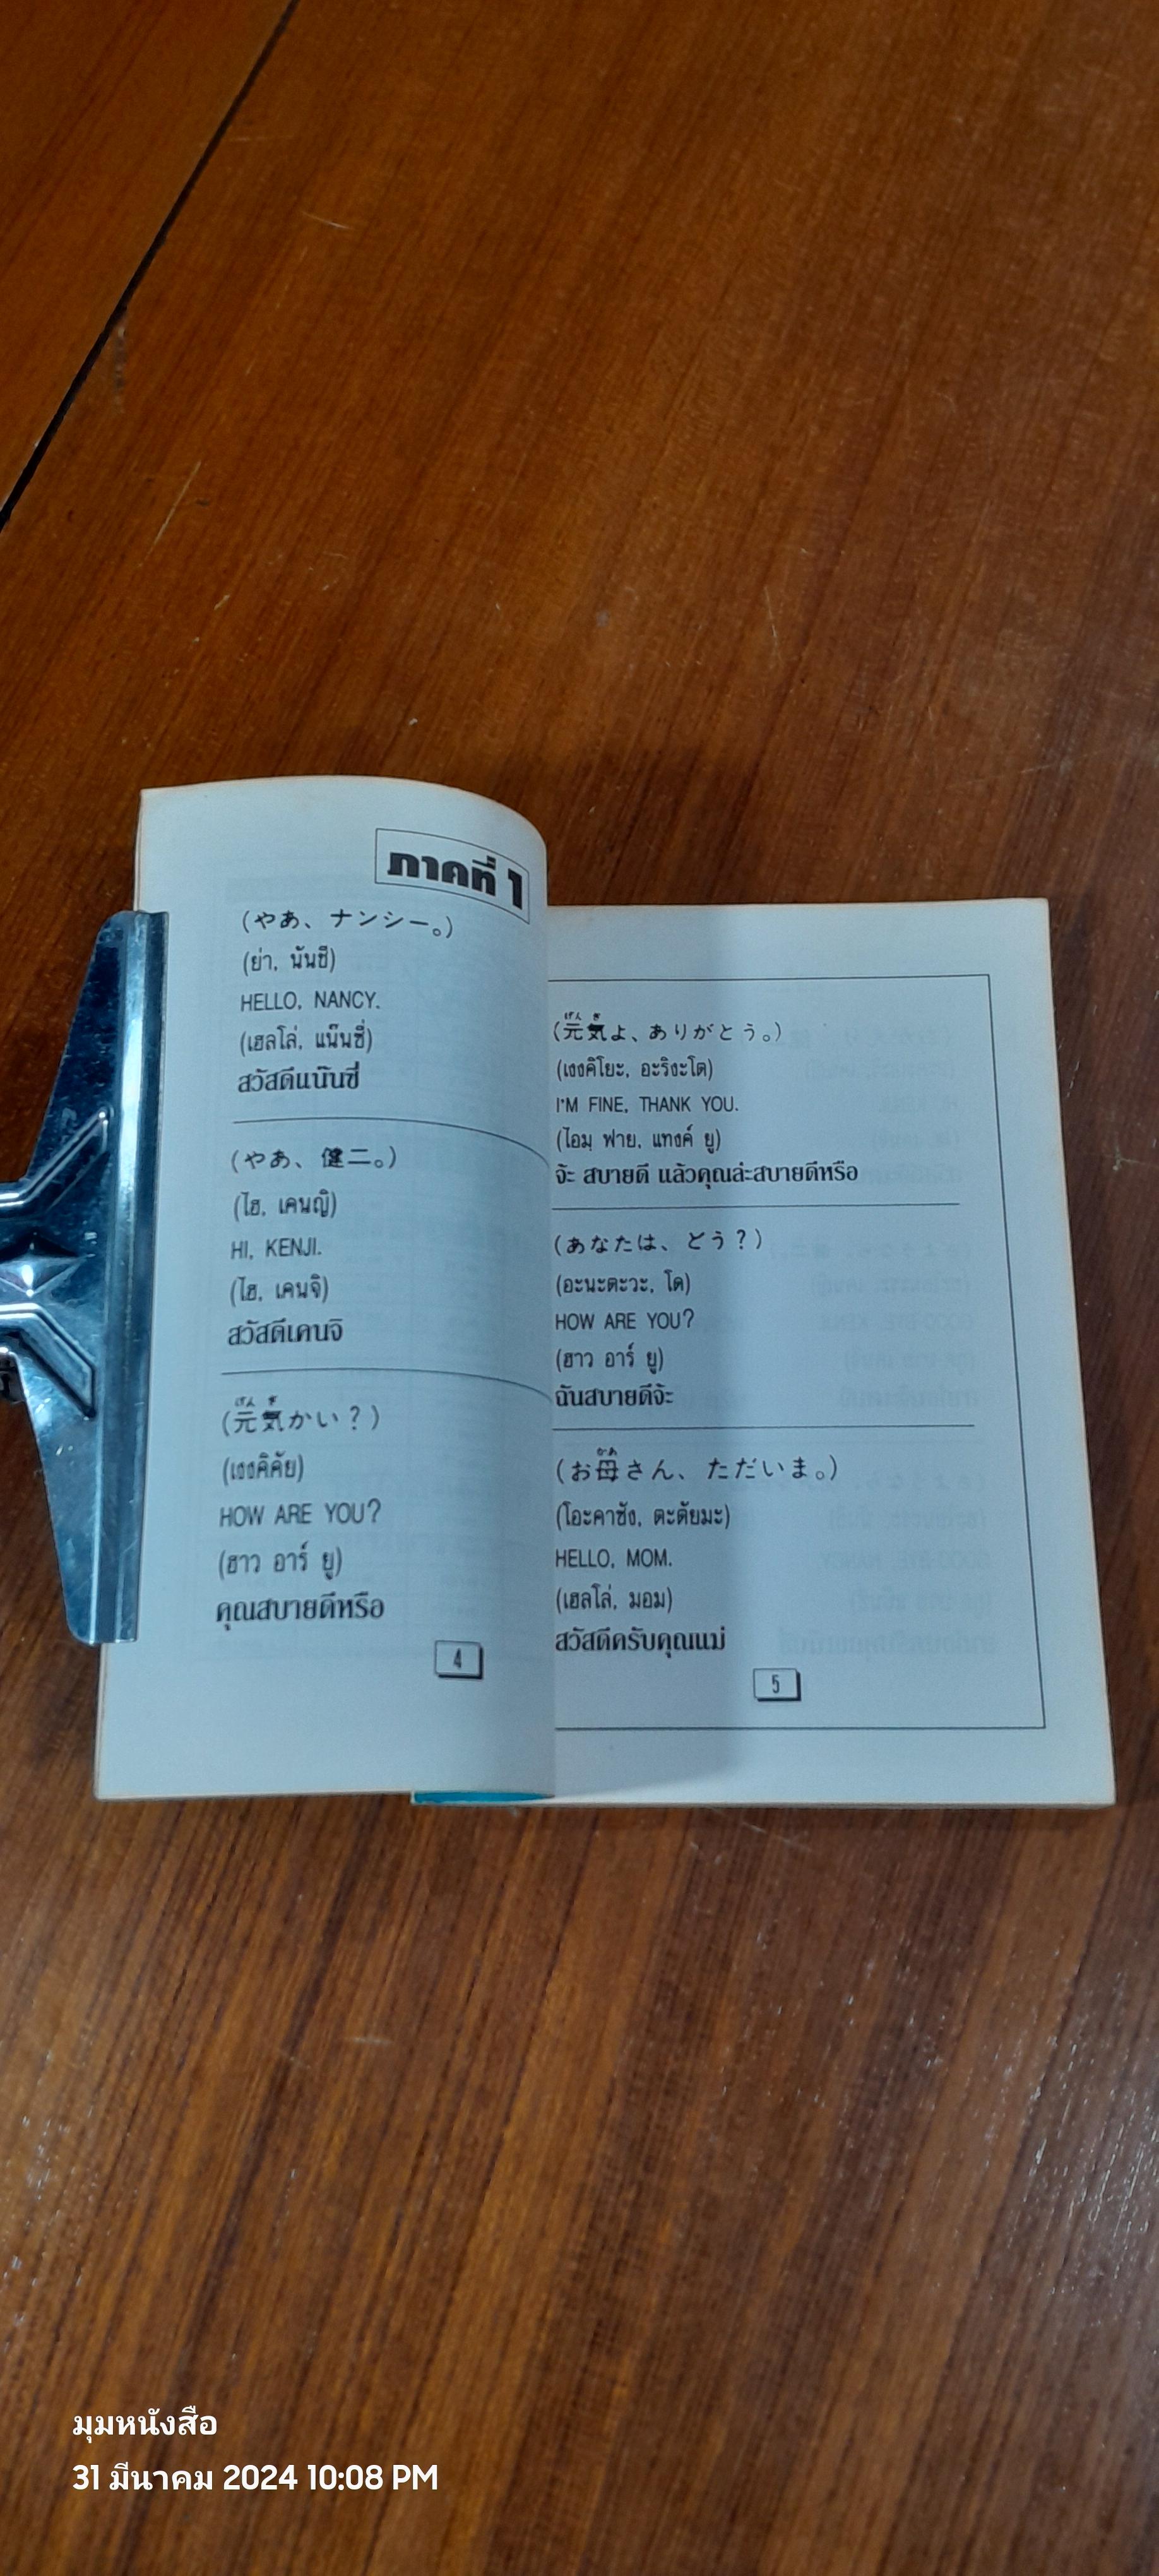 ภาคที่ 1
(やあ、ナンシー。)
(ย่า, นันชี)
HELLO, NANCY.
(เฮลโล่, แน๊นซี่)
สวัสดีแน๊นซี่
(やあ、健二。)
(ไฮ, เคนญิ)
HI, KENJI.
(ไฮ, เคนจิ)
สวัสดีเคนจิ
げん き
(元気かい？)
(เงงคิคัย)
HOW ARE YOU?
(ฮาว อาร์ ยู)
คุณสบายดีหรือ
4
げん き
(元気よ、ありがとう。)
(เงงคิโยะ, อะริงะโต)
I'M FINE, THANK YOU.
(ไอม ฟาย, แทงค์ ยู)
จ้ะ สบายดี แล้วคุณล่ะสบายดีหรือ
(あなたは、どう？)
(อะนะตะวะ, โด)
HOW ARE YOU?
(ฮาว อาร์ ยู)
ฉันสบายดีจ้ะ
かあ
(お母さん、ただいま。)
(โอะคาซัง, ตะดัยมะ)
HELLO, MOM.
(เฮลโล่, มอม)
สวัสดีครับคุณแม่
5
มุมหนังสือ
31 มีนาคม 2024 10:08 PM